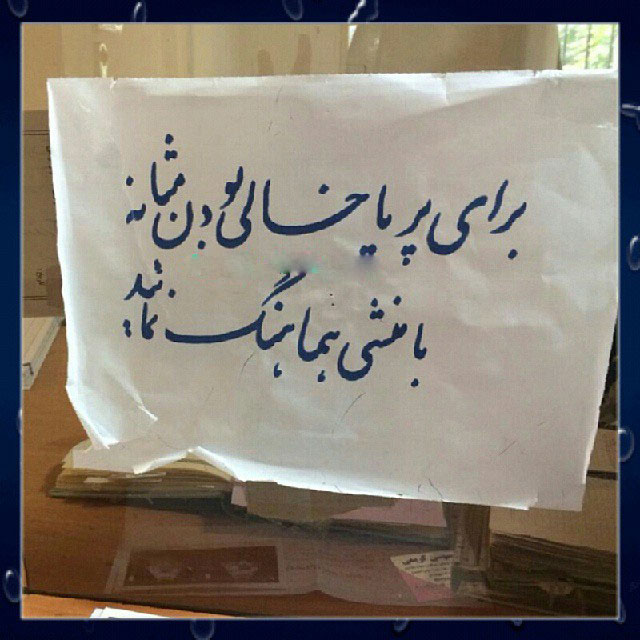 برای پر یا خالی بودن مثانه
با منشی هماهنگ نمائید